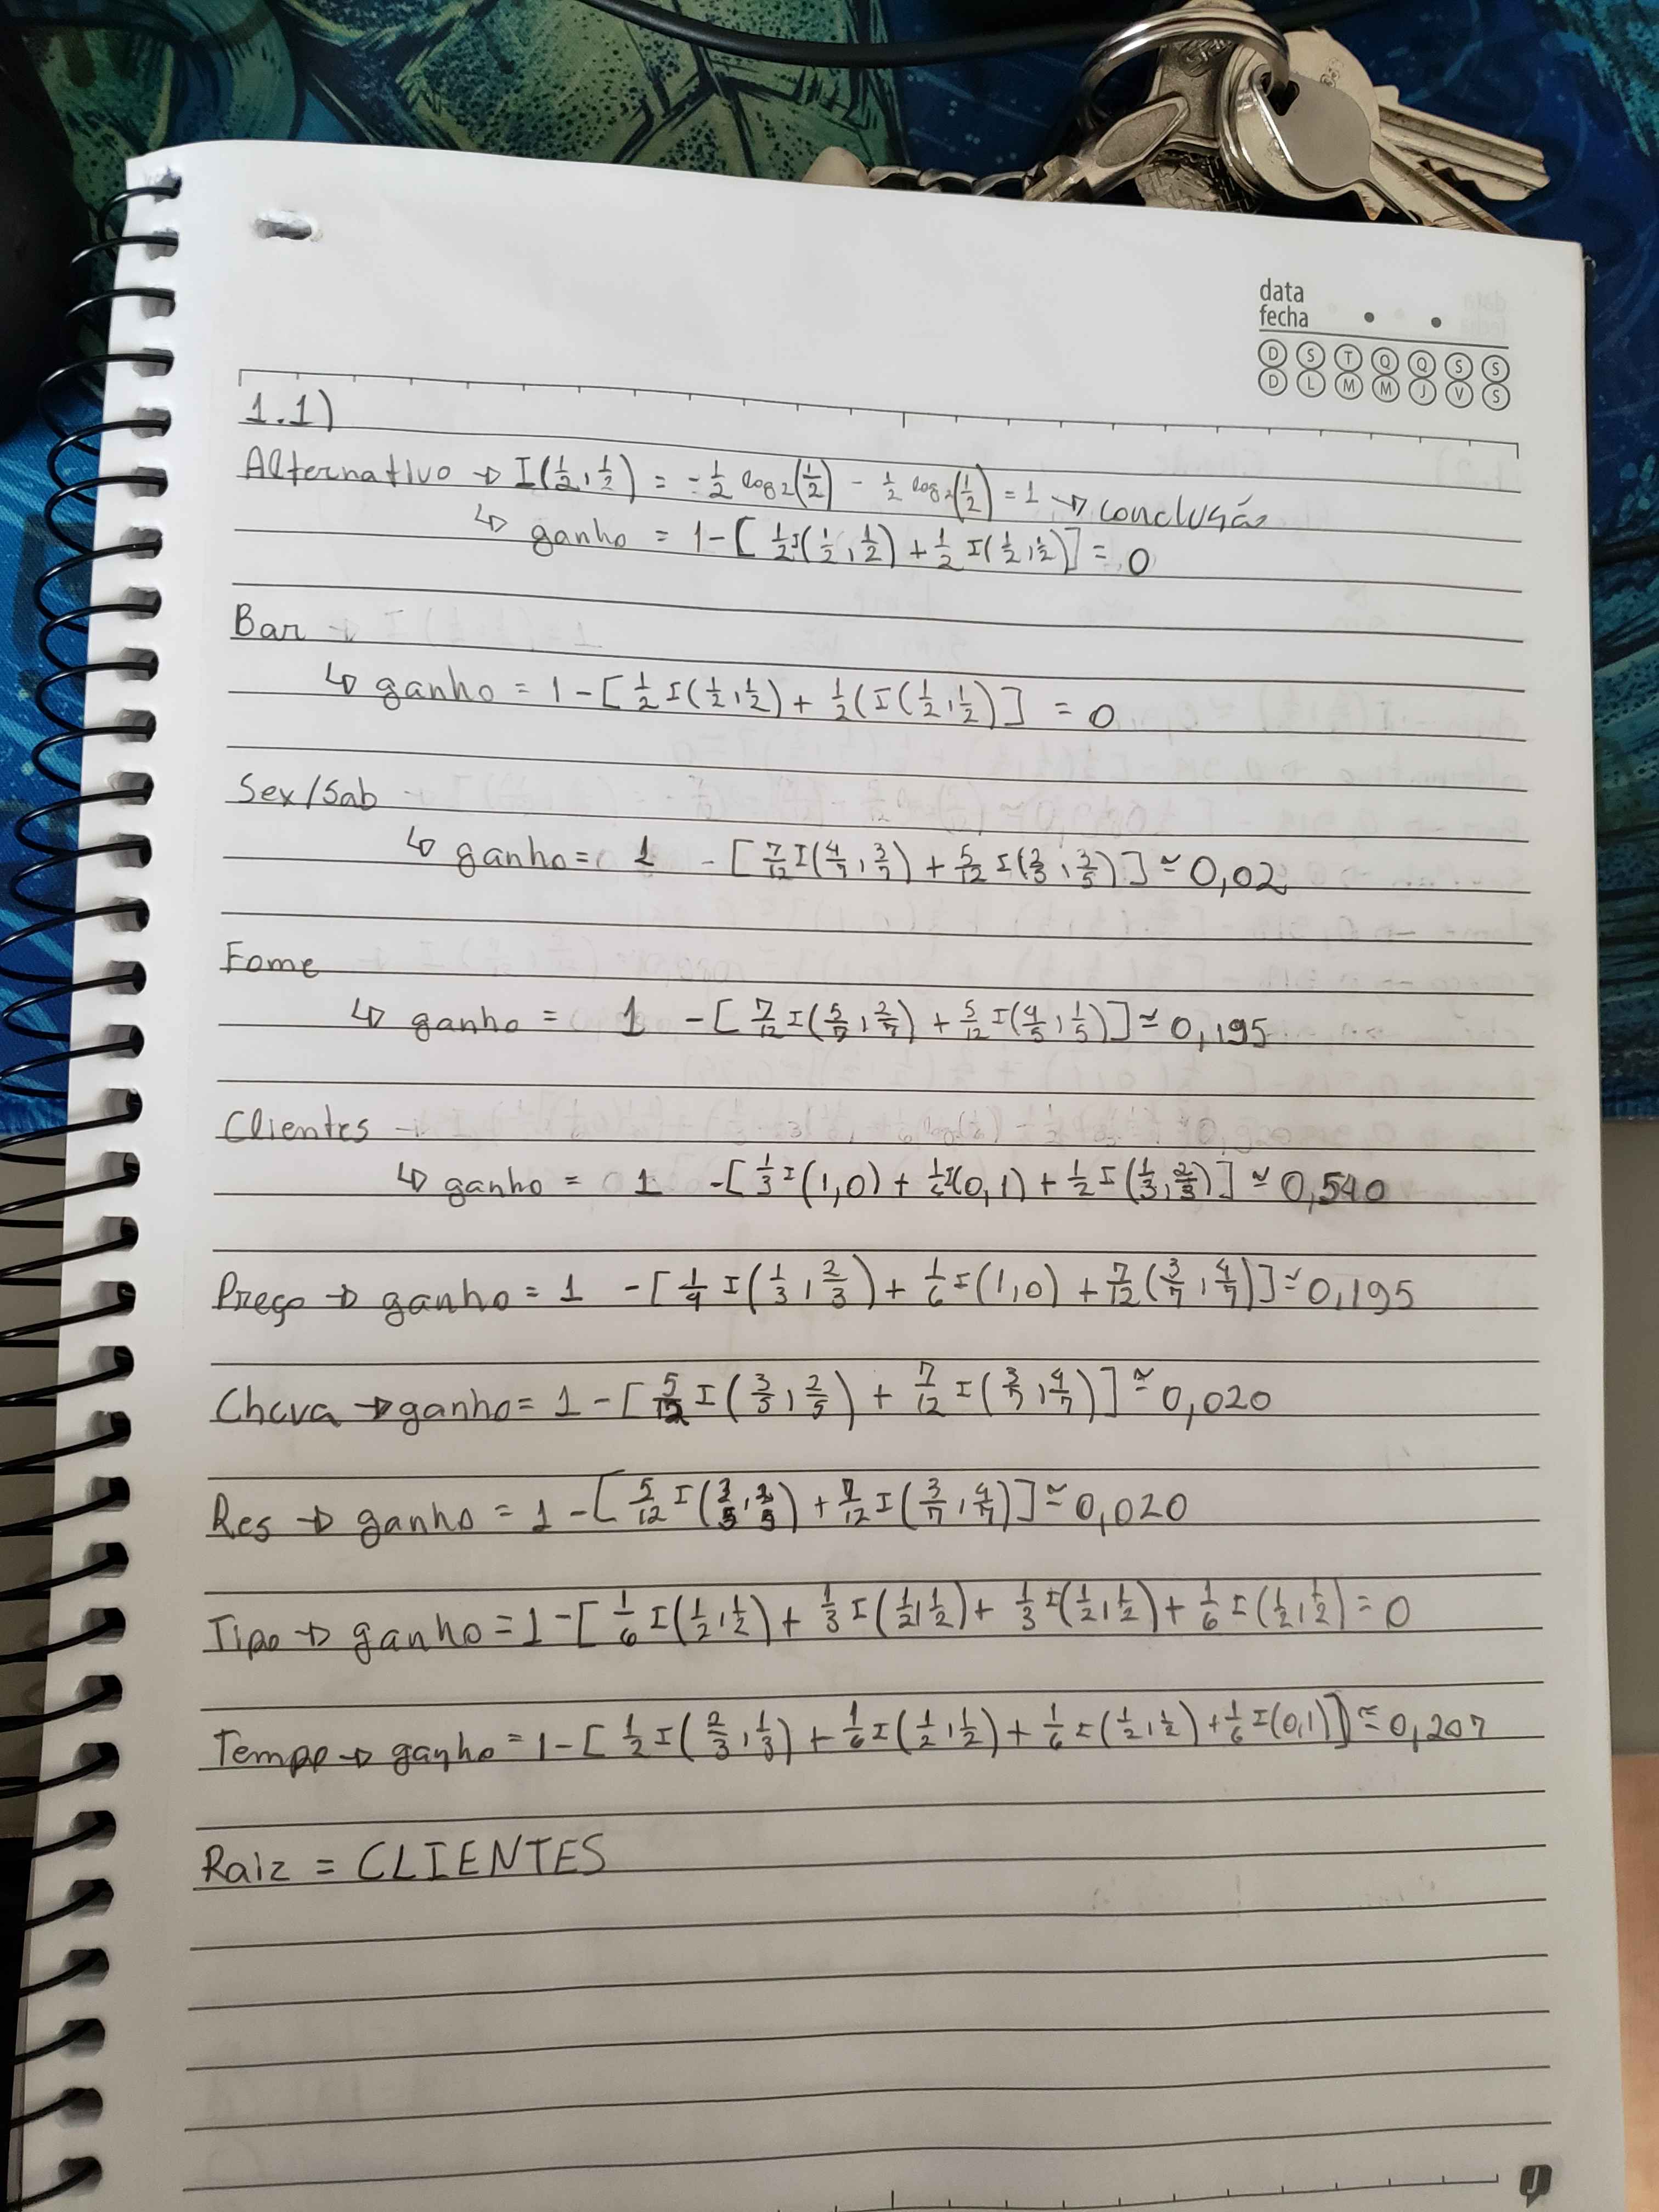 data
fecha
D S T Q Q S S
D L M M J V S
1.1)
Alternativo → I(1/2, 1/2) = -1/2 log2(1/2) - 1/2 log2(1/2) = 1 → conclusão
↳ ganho = 1 - [1/2 I(1/2, 1/2) + 1/2 I(1/2, 1/2)] = 0
Bar
↳ ganho = 1 - [1/2 I(1/2, 1/2) + 1/2 (I(1/2, 1/2)] = 0
Sex/Sab
↳ ganho = 1 - [7/12 I(4/7, 3/7) + 5/12 I( , 3/5)] ≃ 0,02
Fome
↳ ganho = 1 - [7/12 I(5/7, 2/7) + 5/12 I(4/5, 1/5)] ≃ 0,195
Clientes
↳ ganho = 1 - [1/3 I(1,0) + 1/6 I(0,1) + 1/2 I(1/3, 2/3)] ≃ 0,540
Preço → ganho = 1 - [1/4 I(1/3, 2/3) + 1/6 I(1,0) + 7/12 (3/7, 4/7)] ≃ 0,195
Chuva → ganho = 1 - [5/12 I(3/5, 2/5) + 7/12 I(3/7, 4/7)] ≃ 0,020
Res → ganho = 1 - [5/12 I(3/5, 2/5) + 7/12 I(3/7, 4/7)] ≃ 0,020
Tipo → ganho = 1 - [1/6 I(1/2, 1/2) + 1/3 I(1/2, 1/2) + 1/3 I(1/2, 1/2) + 1/6 I(1/2, 1/2) = 0
Tempo → ganho = 1 - [1/2 I(2/3, 1/3) + 1/6 I(1/2, 1/2) + 1/6 I(1/2, 1/2) + 1/6 I(0,1)] ≃ 0,207
Raiz = CLIENTES
J